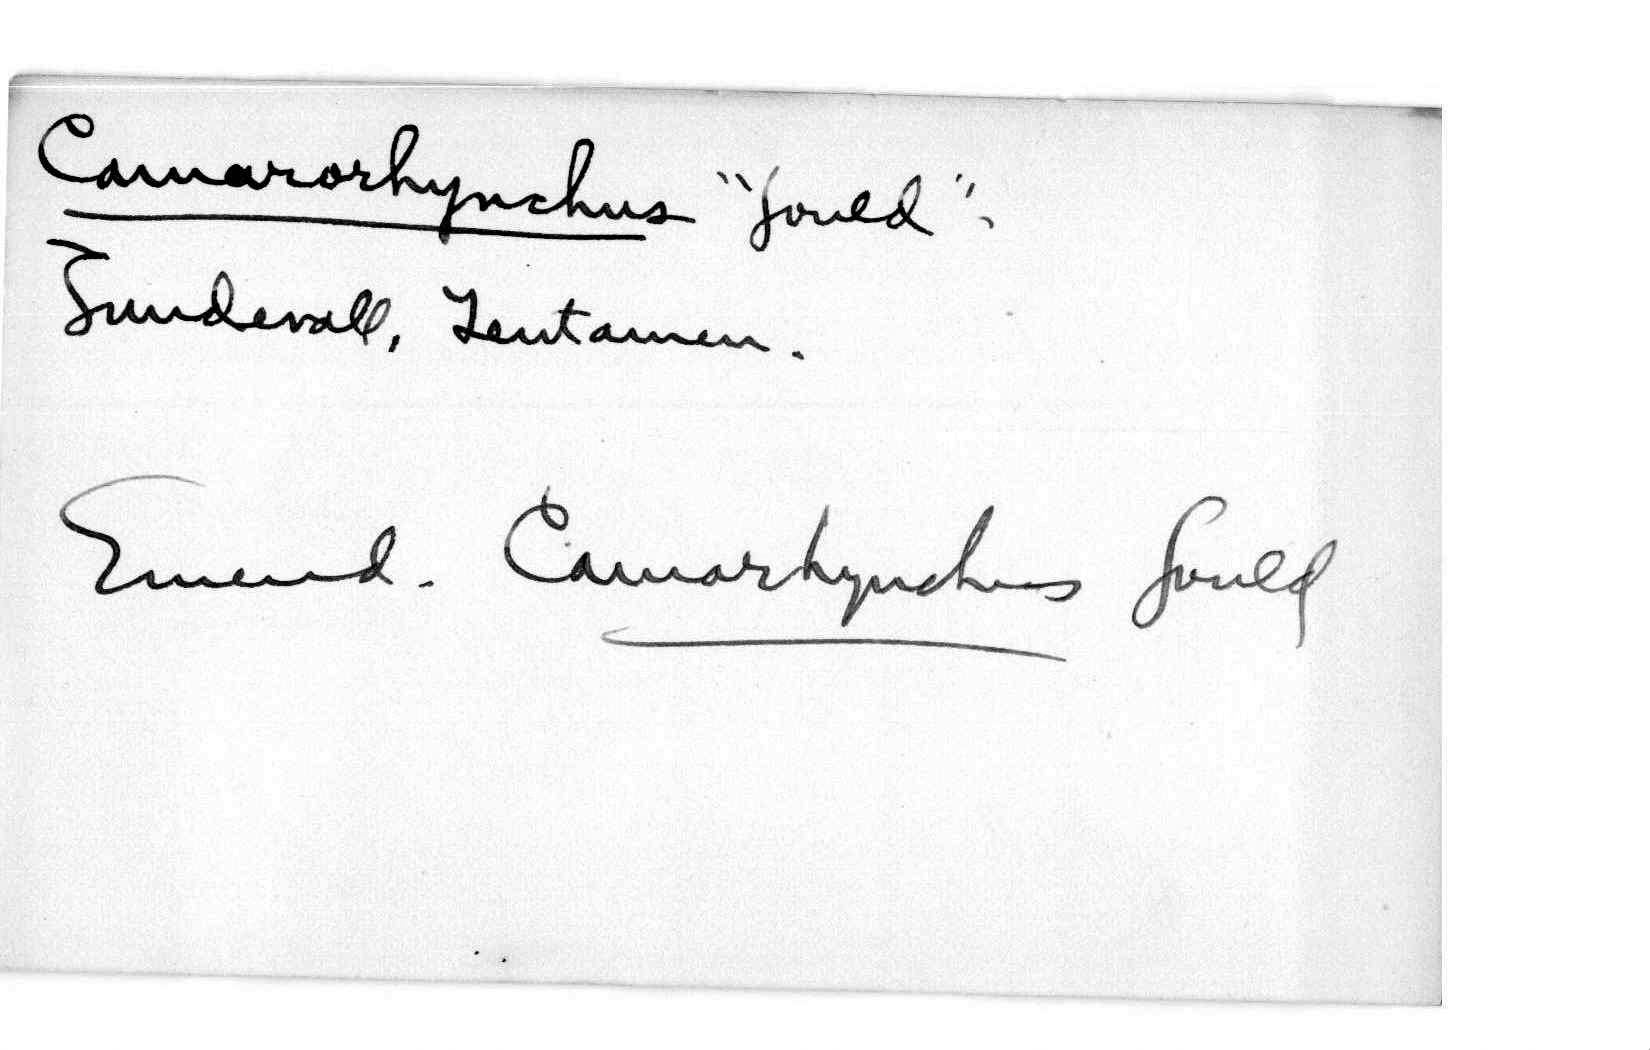 Camarorhynchus "Gould".
Sundevall, Tentamen.
Emend. Camarhynchus Gould